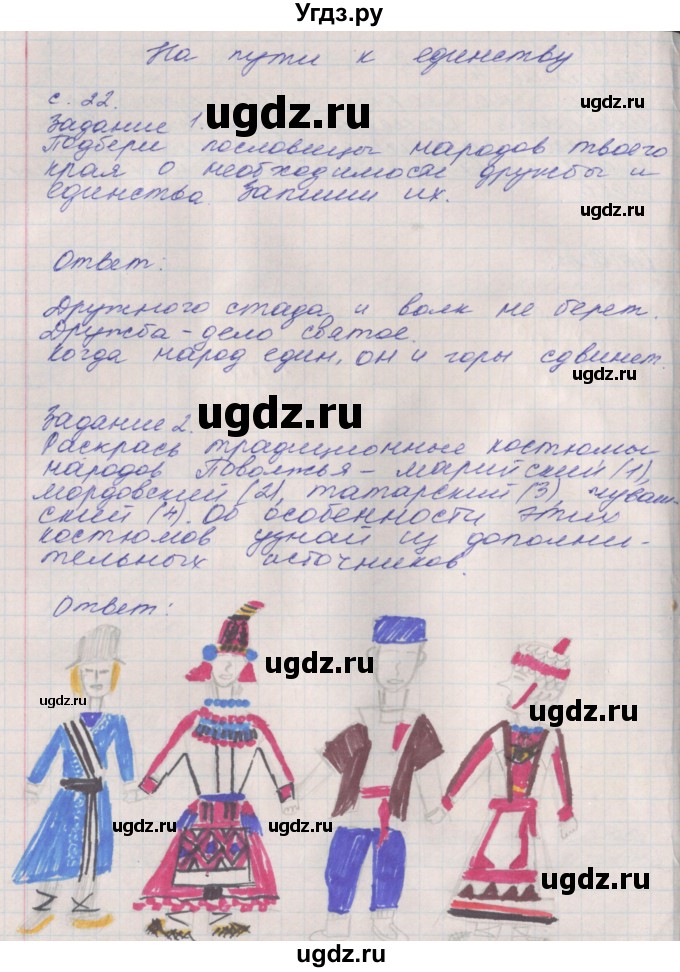 Угдз.ру
На пути к единству
с. 22.
ugdz.ru
ugdz.ru
Задание 1.
Подбери пословицы народов твоего
края о необходимости дружбы и
единства. Запиши их.
ugdz.ru
Ответ:
ugdz.ru
Дружного стада и волк не берет.
Дружба - дело святое.
Когда народ един, он и горы сдвинет.
ugdz.ru
Задание 2.
ugdz.ru
Раскрась традиционные костюмы
народов Поволжья - марийский (1),
мордовский (2), татарский (3), чуваш-
ский (4). Об особенности этих
костюмов узнай из дополни-
тельных источников.
ugdz.ru
Ответ:
ugdz.ru
ugdz.ru
ugdz.ru
ugdz.ru
ugdz.ru
ugdz.ru
ugdz.ru